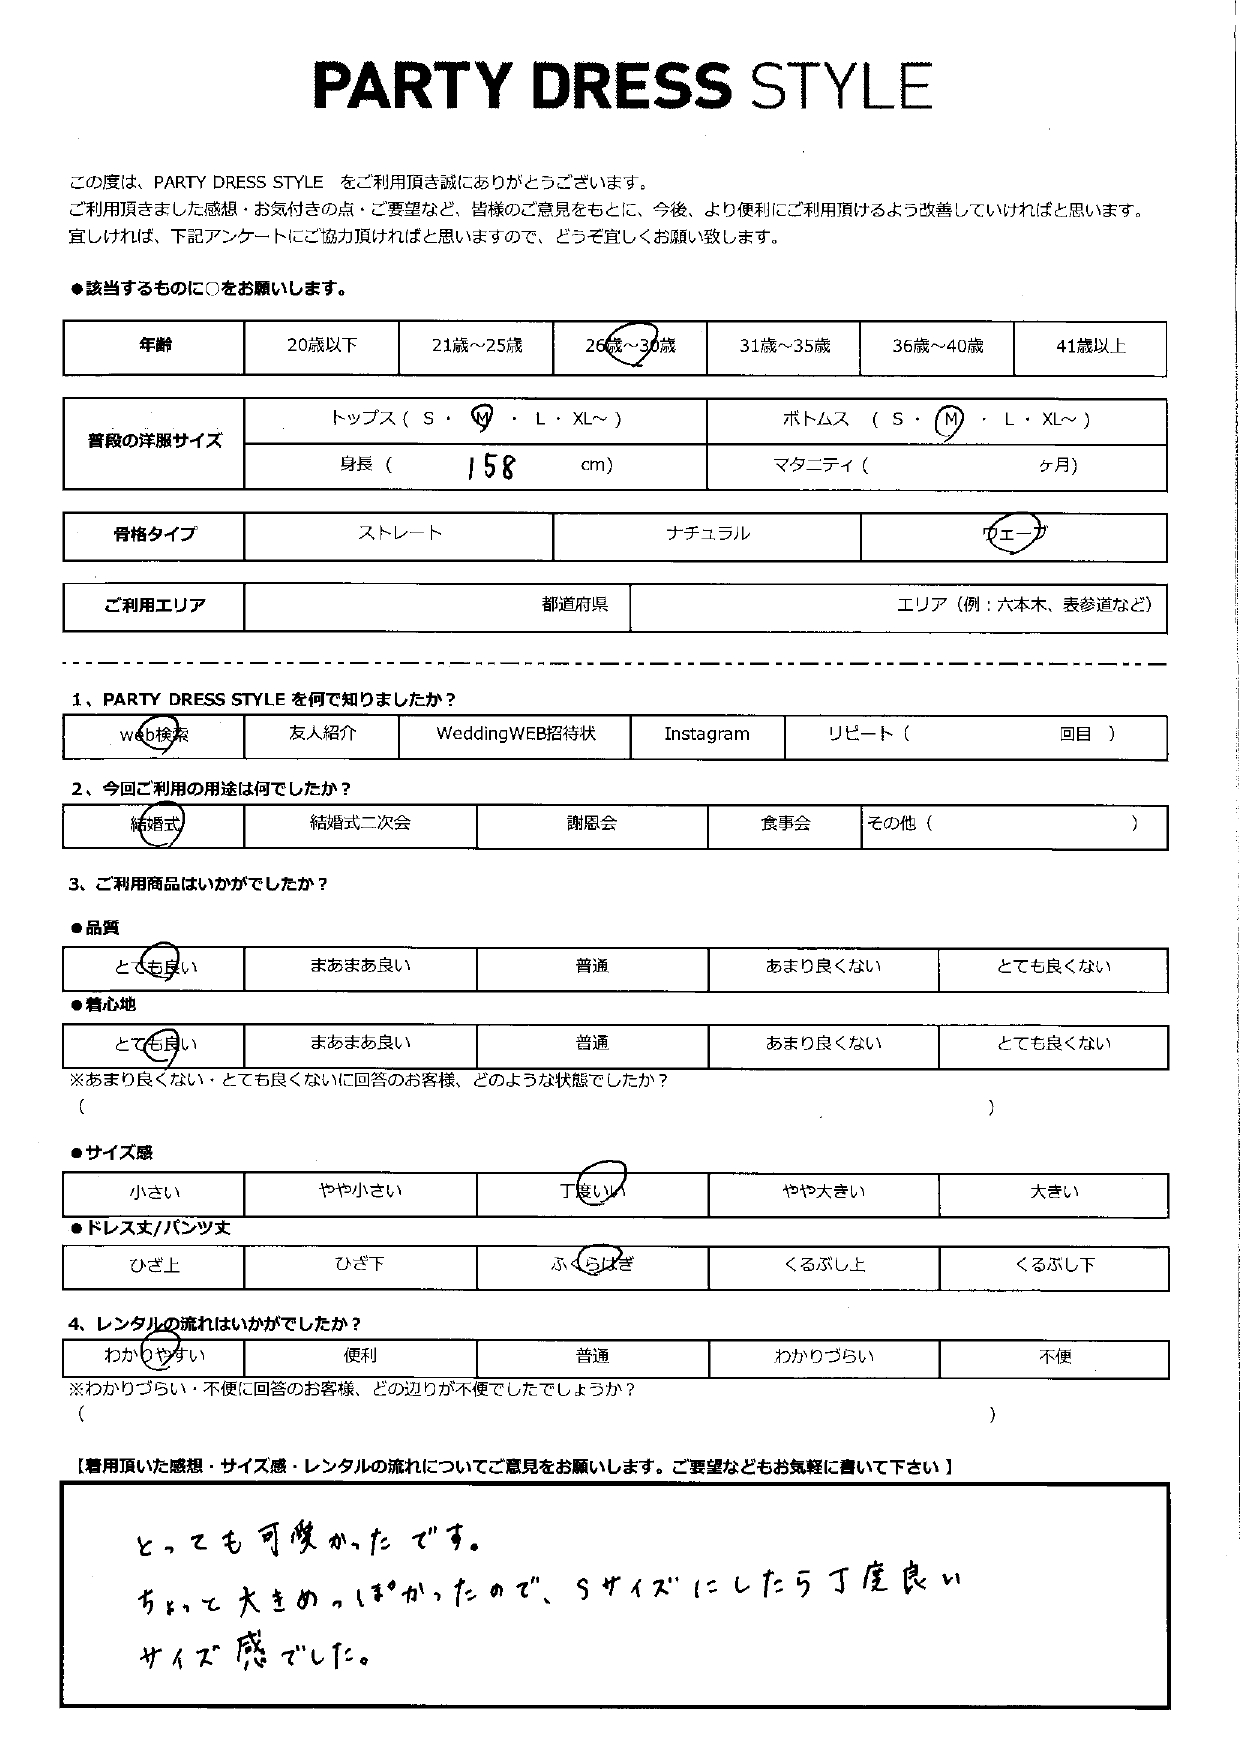 PARTY DRESS STYLE
この度は、PARTY DRESS STYLE をご利用頂き誠にありがとうございます。
ご利用頂きました感想・お気付きの点・ご要望など、皆様のご意見をもとに、今後、より便利にご利用頂けるよう改善していければと思います。
宜しければ、下記アンケートにご協力頂ければと思いますので、どうぞ宜しくお願い致します。
●該当するものに○をお願いします。
年齢 20歳以下 21歳～25歳 26歳～30歳 31歳～35歳 36歳～40歳 41歳以上
普段の洋服サイズ トップス ( S ・ M ・ L ・ XL～ ) ボトムス ( S ・ M ・ L ・ XL～ )
身長 ( 158 cm) マタニティ ( ヶ月)
骨格タイプ ストレート ナチュラル ウェーブ
ご利用エリア 都道府県 エリア（例：六本木、表参道など）
1、PARTY DRESS STYLE を何で知りましたか？
web検索 友人紹介 WeddingWEB招待状 Instagram リピート ( 回目 )
2、今回ご利用の用途は何でしたか？
結婚式 結婚式二次会 謝恩会 食事会 その他 ( )
3、ご利用商品はいかがでしたか？
●品質
とても良い まあまあ良い 普通 あまり良くない とても良くない
●着心地
とても良い まあまあ良い 普通 あまり良くない とても良くない
※あまり良くない・とても良くないに回答のお客様、どのような状態でしたか？
( )
●サイズ感
小さい やや小さい 丁度いい やや大きい 大きい
●ドレス丈/パンツ丈
ひざ上 ひざ下 ふくらはぎ くるぶし上 くるぶし下
4、レンタルの流れはいかがでしたか？
わかりやすい 便利 普通 わかりづらい 不便
※わかりづらい・不便に回答のお客様、どの辺りが不便でしたでしょうか？
( )
【着用頂いた感想・サイズ感・レンタルの流れについてご意見をお願いします。ご要望などもお気軽に書いて下さい】
とっても可愛かったです。
ちょっと大きめっぽかったので、Sサイズにしたら丁度良い
サイズ感でした。